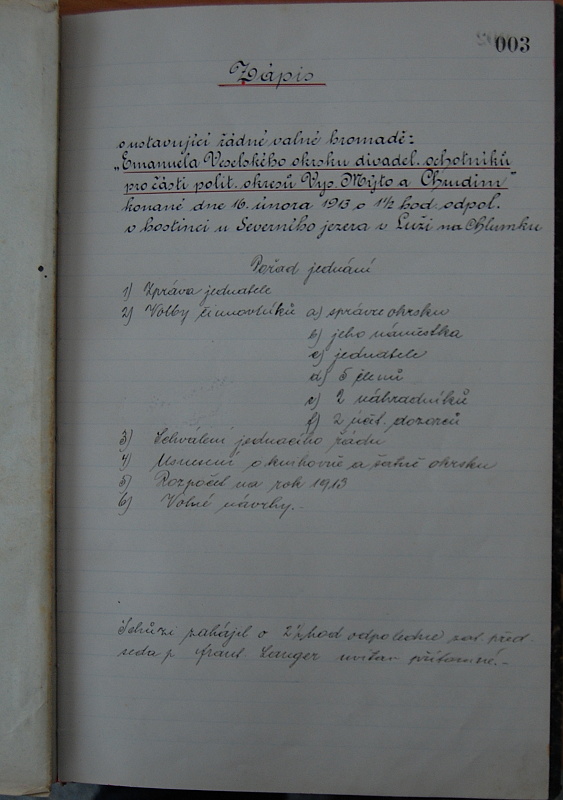 003
Zápis
o ustavující řádné valné hromadě:
„Emanuela Veselského okrsku divadel. ochotníků
pro části polit. okresů Vys. Mýto a Chrudim"
konané dne 16. února 1913 o 1½ hod. odpol.
v hostinci u Severního jezera v Luži na Chlumku
Pořad jednání
1) Zpráva jednatele
2) Volby činovníků a) správce okrsku
b) jeho náměstka
c) jednatele
d) 5 členů
e) 2 náhradníků
f) 2 účt. dozorců
3) Schválení jednacího řádu
4) Usnesení o knihovně a šatně okrsku
5) Rozpočet na rok 1913
6) Volné návrhy.
Schůzi zahájil o 2½ hod odpoledne zat. před-
seda p. Frant. Langer uvítav přítomné.-